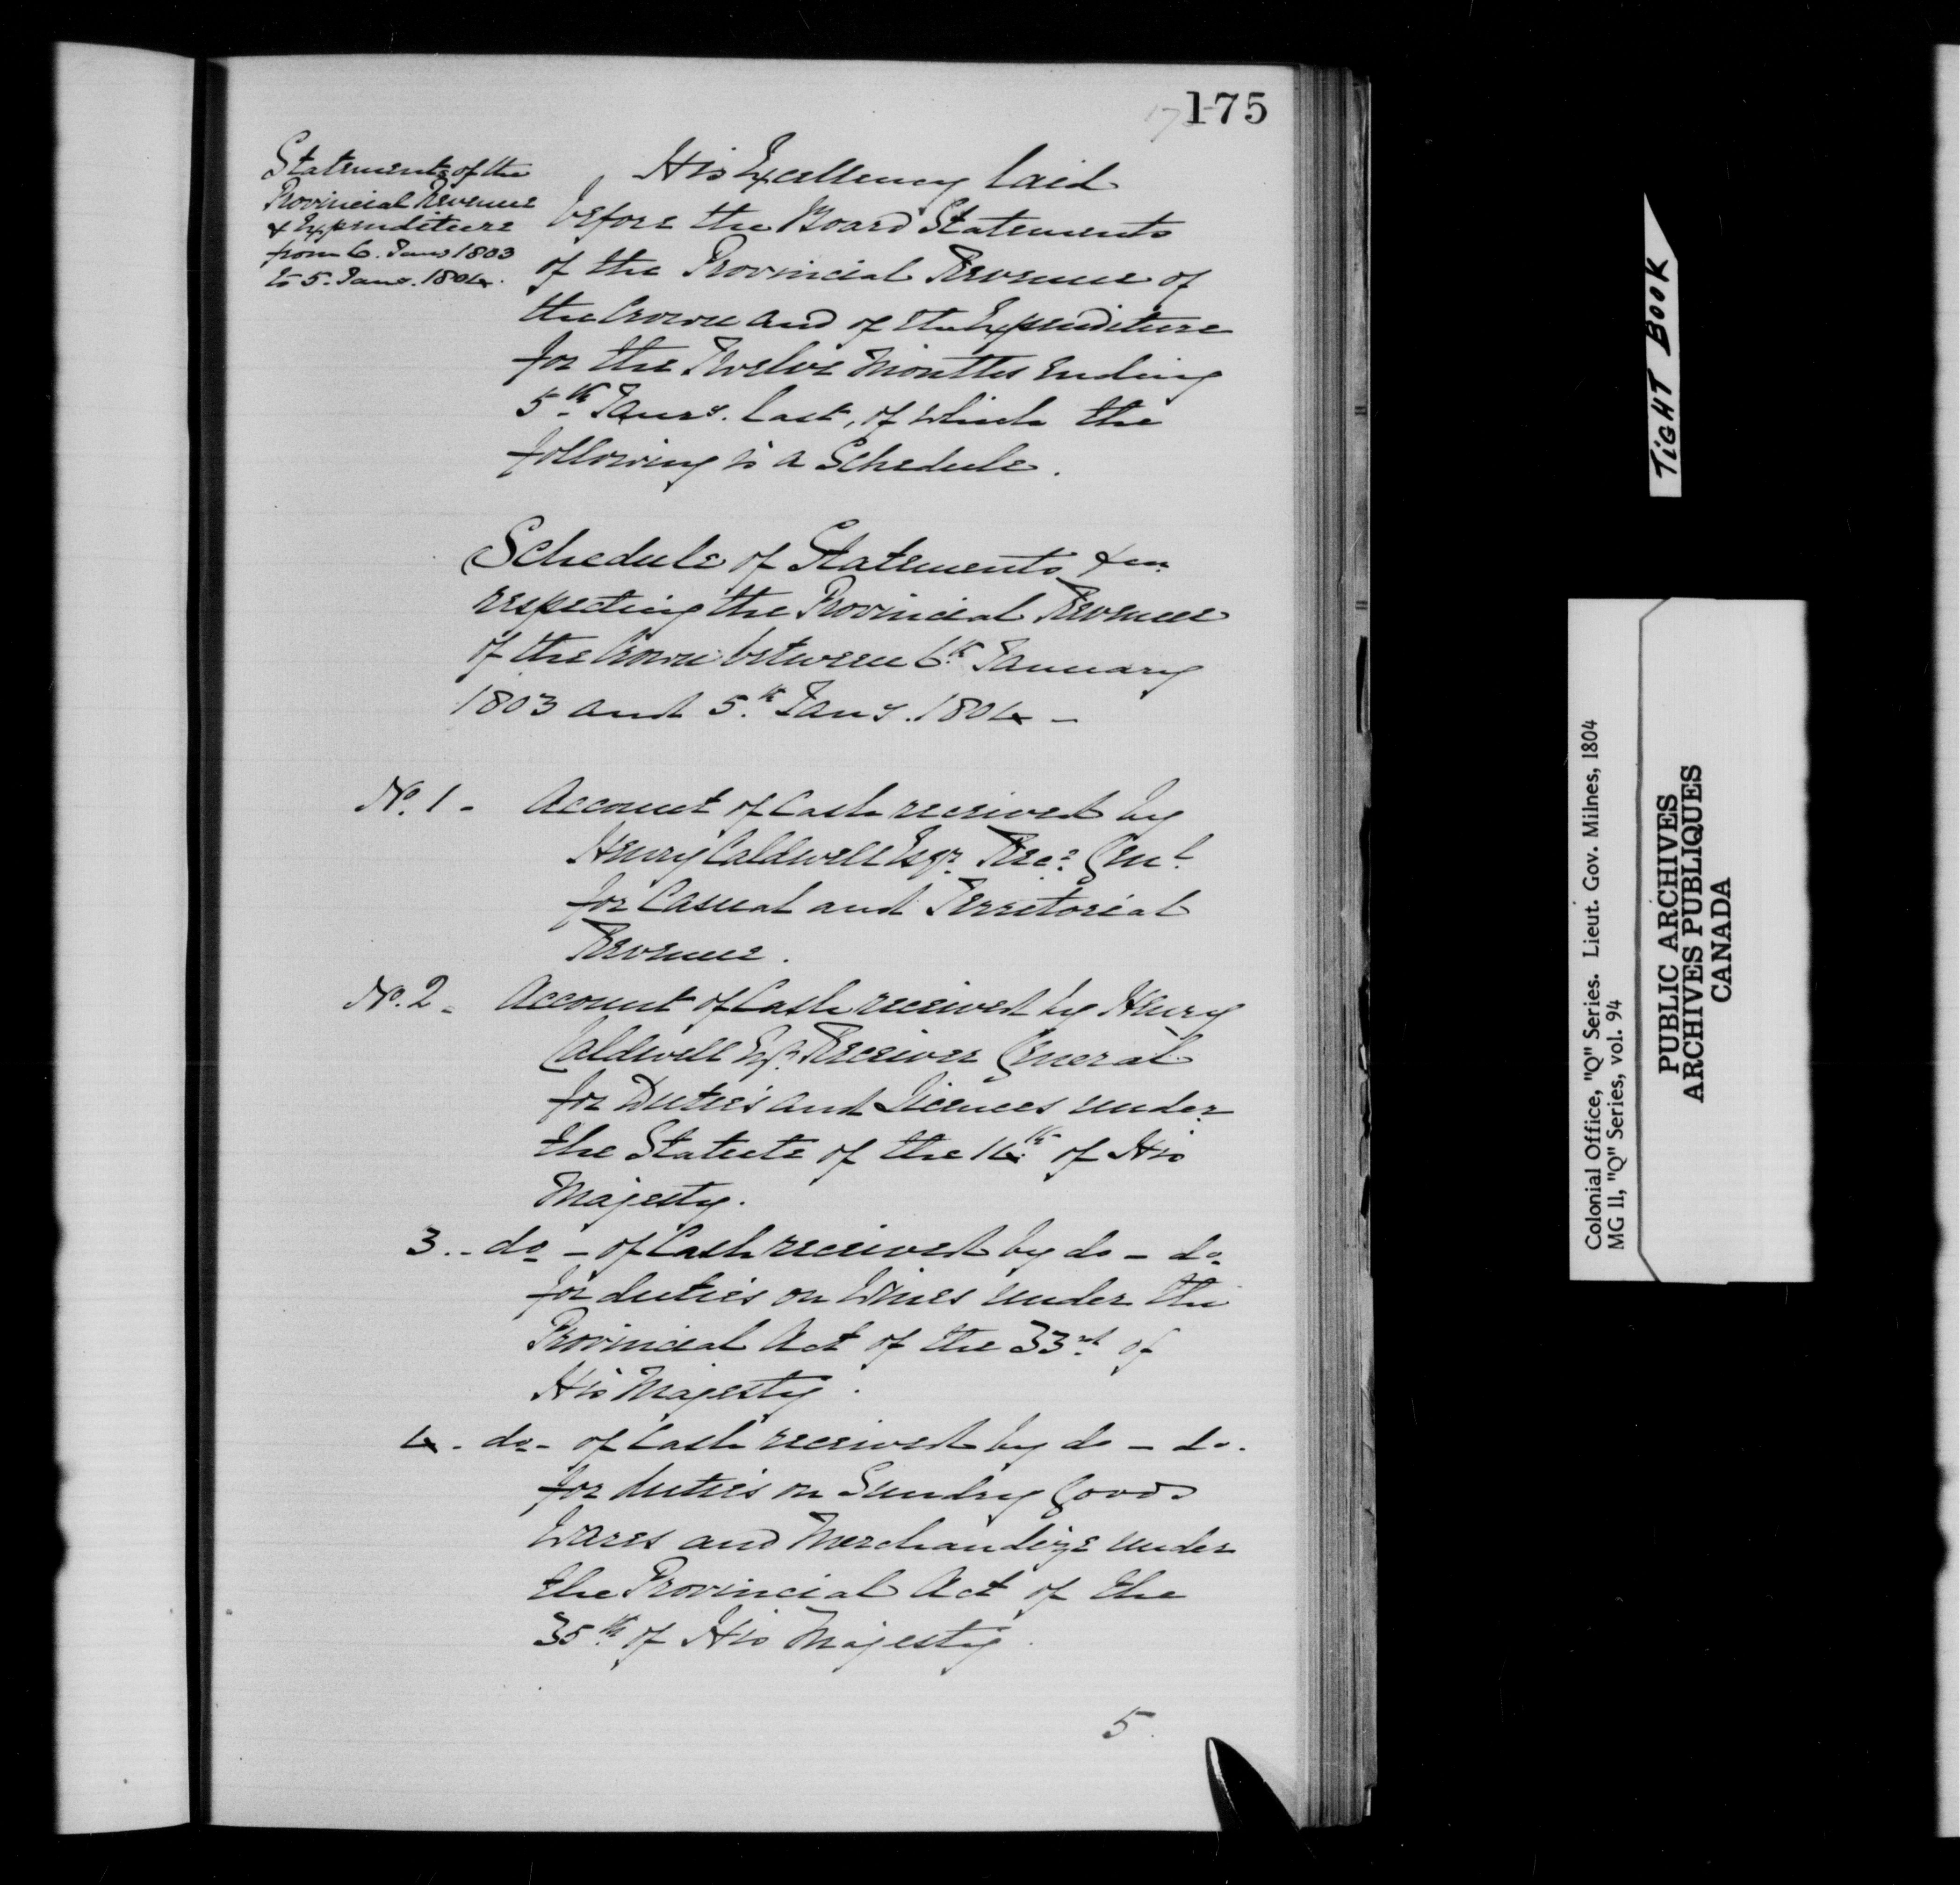 175
Statements of the
Provincial Revenue
& Expenditure
from 6. Jany 1803
to 5. Jany. 1804.
His Excellency laid
before the Board Statements
of the Provincial Revenue of
the Crown and of the Expenditure
for the Twelve Months ending
5th Jany. last, of which the
following is a Schedule.
Schedule of Statements &ca
respecting the Provincial Revenue
of the Crown between 6th January
1803 and 5th Jany. 1804 -
No. 1 - Account of Cash received by
Henry Caldwell Esqr. Recr. Genl.
for Casual and Territorial
Revenue.
No. 2 - Account of Cash received by Henry
Caldwell Esqr. Receiver General
for Duties and Licences under
the Statute of the 14th of His
Majesty.
3. - do - of Cash received by do - do
for duties on Wines under the
Provincial Act of the 33rd of
His Majesty.
4. - do - of Cash received by do - do.
for duties on Sundry Goods
Wares and Merchandize under
the Provincial Act of the
35th of His Majesty.
5.
TIGHT BOOK
Colonial Office, "Q" Series. Lieut. Gov. Milnes, 1804
MG 11, "Q" Series, vol. 94
PUBLIC ARCHIVES
ARCHIVES PUBLIQUES
CANADA